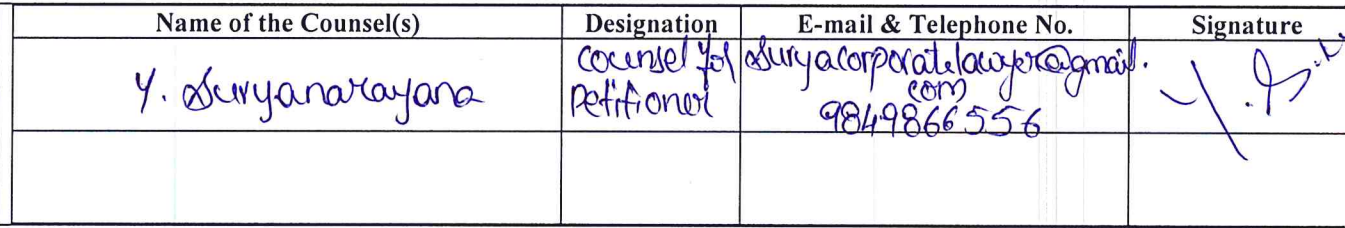 Name of the Counsel(s) Designation E-mail & Telephone No. Signature
Y. Suryanarayana counsel for suryacorporatelawyer@gmail.
Petitioner com
9849866556